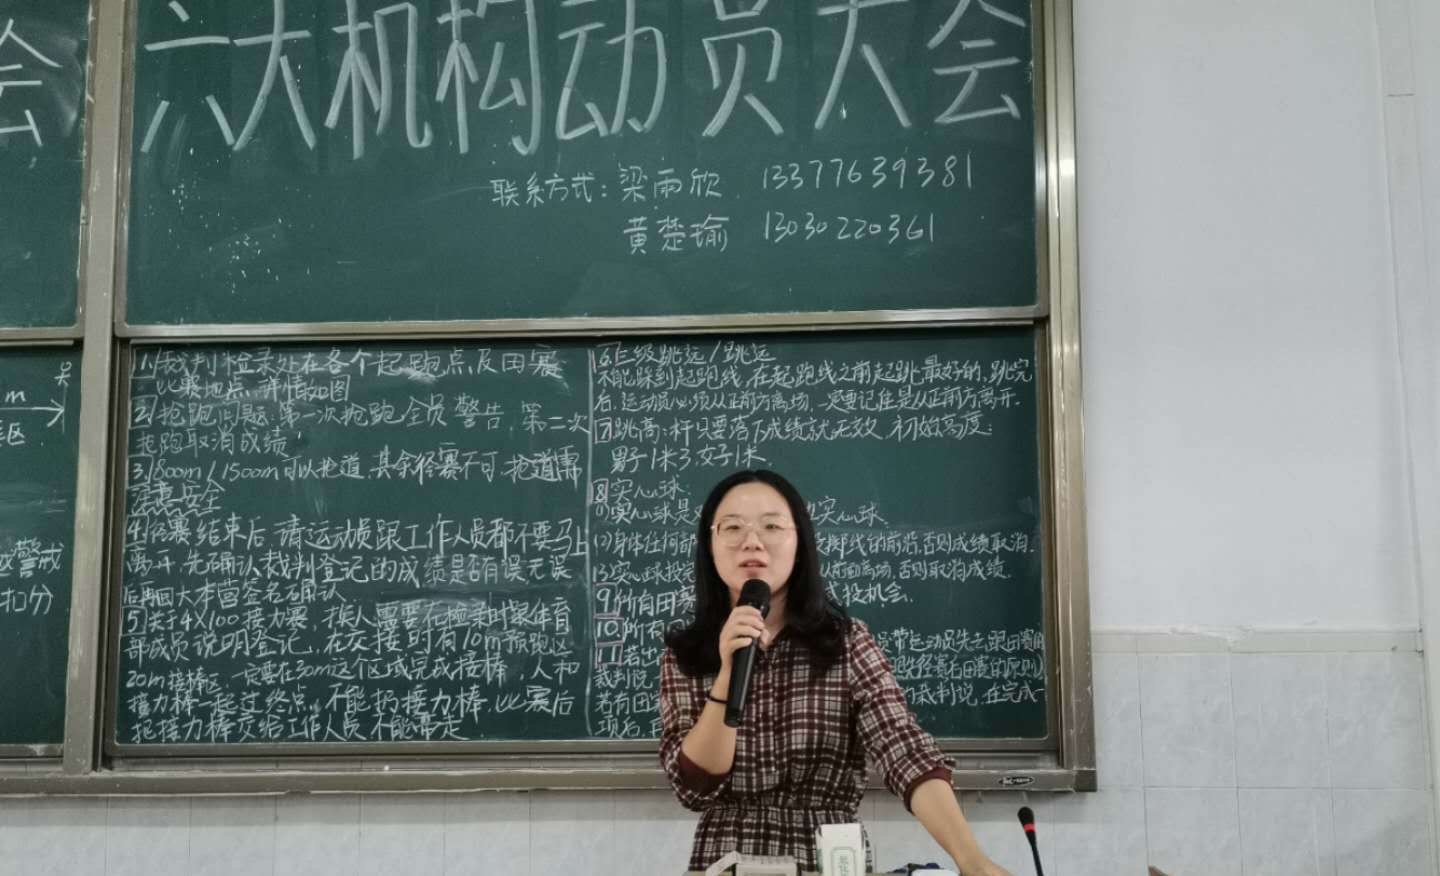 会
六大机构动员大会
联系方式：梁雨欣 13377639381
黄楚瑜 13030220361
m
区
警戒
扣分
1.裁判检录处在各个起跑点及田赛
比赛地点,详情如图
2.抢跑问题:第一次抢跑全员警告,第二次
抢跑取消成绩!
3.1800m/1500m可以抢道,其余径赛不可,抢道需
注意安全
4.径赛结束后,请运动员跟工作人员都不要马上
离开,先确认裁判登记的成绩是否有误,无误
后再回大本营签名确认
5.关于4×100接力赛,换人需要在检录时跟体育
部成员说明登记,在交接时有10m预跑区
20m接棒区,一定要在30m这个区域完成接棒,人和
接力棒一起过终点,不能扔接力棒,比赛后
把接力棒交给工作人员不能带走
6.三级跳远/跳远
不能踩到起跑线,在起跑线之前起跳最好的,跳完
后,运动员必须从正前方离场,一定要记住是从正前方离开.
7.跳高:杆只要落下成绩就无效,初始高度:
男子1米3,女子1米.
8.实心球:
(1)实心球是 实心球.
(2)身体任何部 掷线的前沿,否则成绩取消.
(3)实心球投完 离场,否则取消成绩.
9.所有田赛 投机会.
10.所有
11.若出 带运动员先去跟田赛的
裁判说 径赛后田赛的原则,
若有田赛 的裁判说,在完成一
项后,